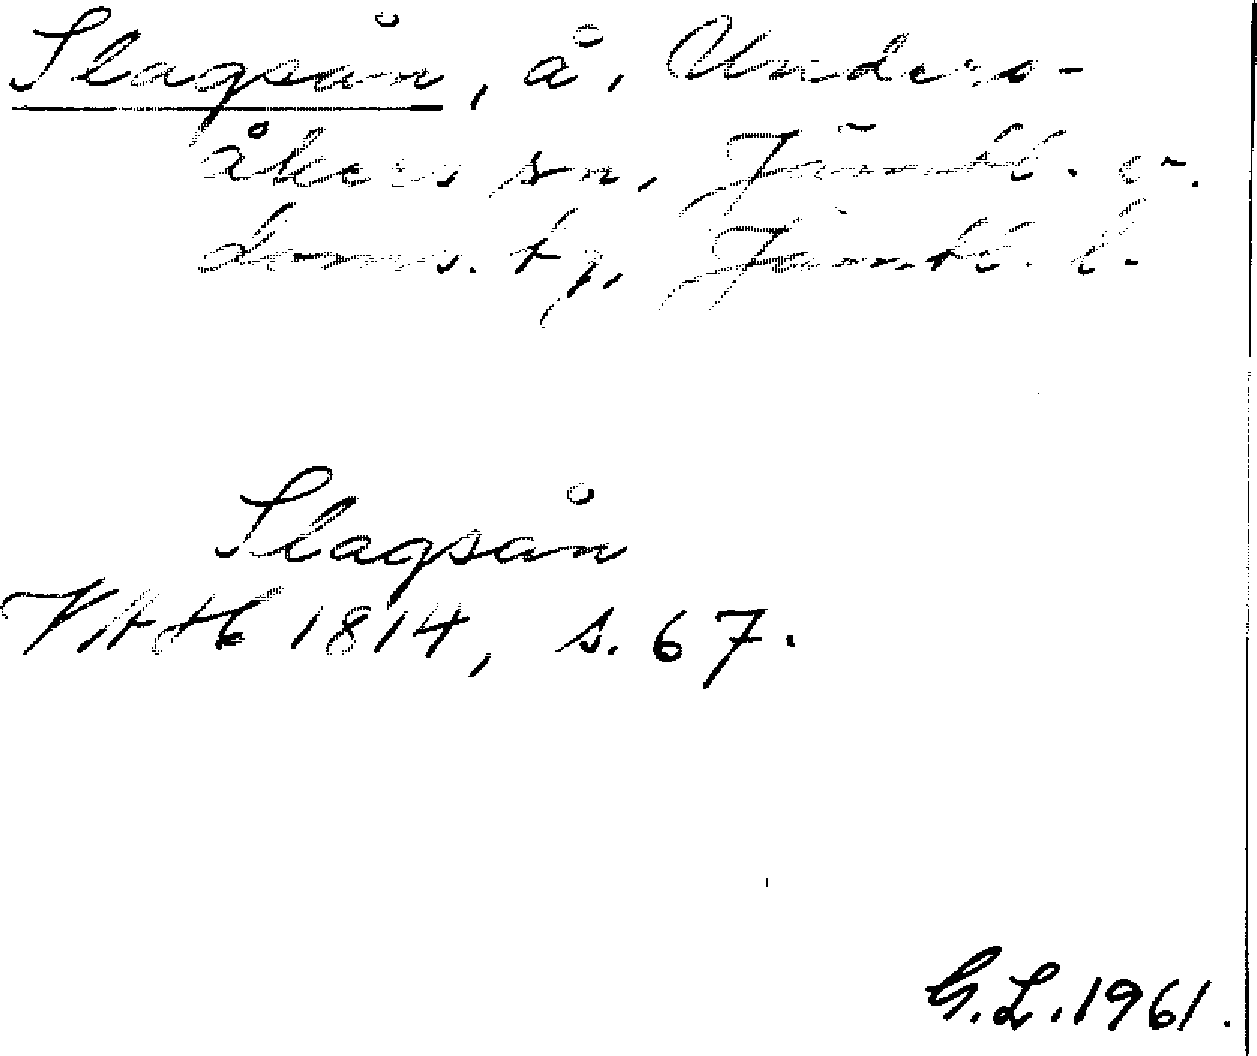 Slagsån, å, Unders-
åkers sn, Jämtl. v.
doms. tg, Jämtl. l.
Slagsån
VittH 1814, s. 67.
G.L. 1961.